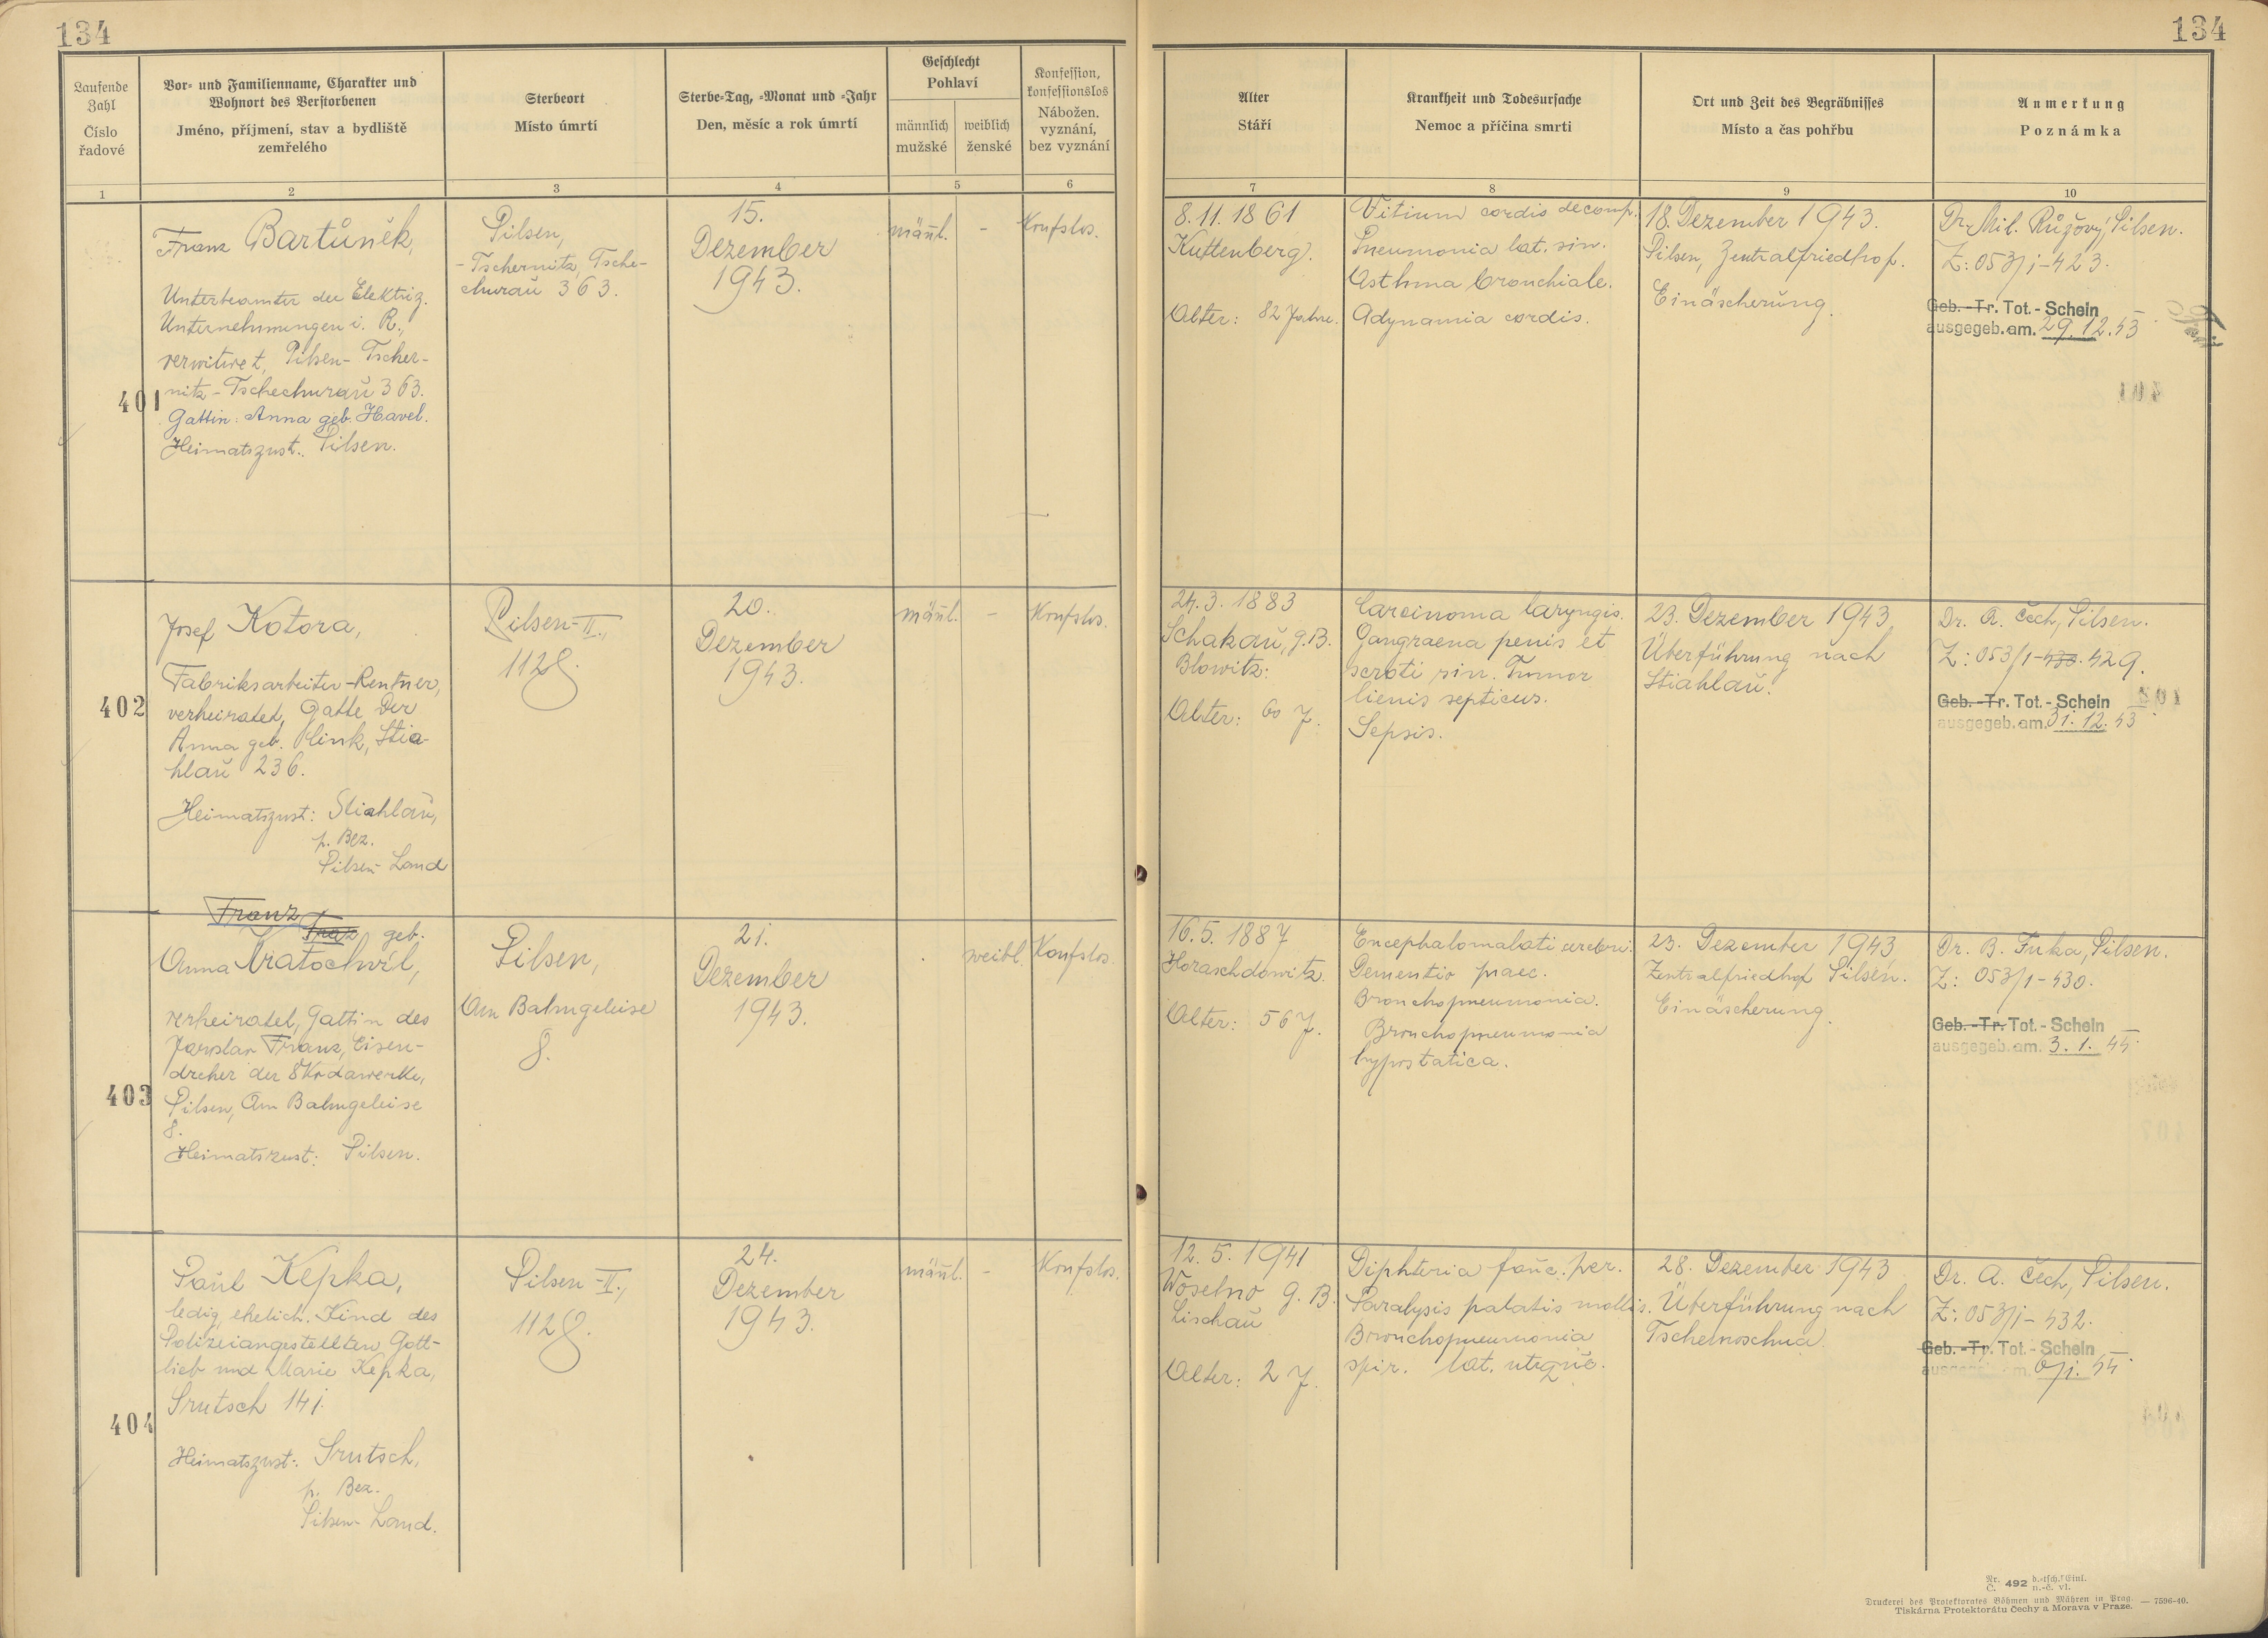 134
134
Laufende
Zahl
Číslo
řadové
Vor- und Familienname, Charakter und
Wohnort des Verstorbenen
Jméno, příjmení, stav a bydliště
zemřelého
Sterbeort
Místo úmrtí
Sterbe-Tag, -Monat und -Jahr
Den, měsíc a rok úmrtí
Geschlecht
Pohlaví
männlich
mužské
weiblich
ženské
Konfession,
konfessionslos
Nábožen.
vyznání,
bez vyznání
Alter
Stáří
Krankheit und Todesursache
Nemoc a příčina smrti
Ort und Zeit des Begräbnisses
Místo a čas pohřbu
Anmerkung
Poznámka
1
2
3
4
5
6
7
8
9
10
401
Franz Bartůněk,
Unterbeamter der Elektriz.
Unternehmungen i. R.,
verwitwet, Pilsen-Tscher-
nitz-Tschechurau 363.
Gattin: Anna geb. Havel.
Heimatszust.: Pilsen.
Pilsen,
-Tschernitz, Tsche-
churaŭ 363.
15.
Dezember
1943.
männl.
-
Konfslos.
8.11.1861
Kuttenberg.
Alter: 82 Jahre.
Vitium cordis decomp.
Pneumonia lat. sin.
Asthma bronchiale.
Adynamia cordis.
18. Dezember 1943.
Pilsen, Zentralfriedhof.
Einäscherung.
Dr. Mil. Růžový, Pilsen.
Z: 053/1-423.
Geb.-Tr. Tot.-Schein
ausgegeb. am. 29.12.43
402
Josef Kotora,
Fabriksarbeiter-Rentner,
verheiratet, Gatte der
Anna geb. Plink, Stia-
hlaŭ 236.
Heimatszust: Stiahlaŭ,
p. Bez.
Pilsen-Land
Pilsen-II.,
1128
20.
Dezember
1943.
männl.
-
Konfslos.
24.3.1883
Schakaŭ, g.B.
Blowitz.
Alter: 60 J.
Carcinoma laryngis.
Gangraena penis et
scroti sin. Tumor
lienis septicus.
Sepsis.
23. Dezember 1943
Überführung nach
Stiahlaŭ.
Dr. A. Čech, Pilsen.
Z: 053/1-429.
Geb.-Tr. Tot.-Schein
ausgegeb. am. 31.12.43
403
Franz
Franz geb.
Anna Kratochvíl,
verheiratet, Gattin des
Jaroslav Franz, Eisen-
dreher der Škodawerke,
Pilsen, Am Bahngeleise
8.
Heimatszust: Pilsen.
Pilsen,
Am Bahngeleise
8.
21.
Dezember
1943.
weibl.
Konfslos.
16.5.1887
Horaschdowitz.
Alter: 56 J.
Encephalomalati cerebri.
Dementio praec.
Bronchopneumonia.
Bronchopneumonia
hypostatica.
23. Dezember 1943
Zentralfriedhof Pilsen.
Einäscherung.
Dr. B. Fuka, Pilsen.
Z: 053/1-430.
Geb.-Tr. Tot.-Schein
ausgegeb. am. 3.1.44
404
Paŭl Kepka,
ledig, ehelich. Kind des
Polizeiangestellten Gott-
lieb und Marie Kepka,
Srutsch 141.
Heimatszust: Srutsch,
p. Bez.
Pilsen-Land.
Pilsen-II.,
1128.
24.
Dezember
1943.
männl.
-
Konfslos.
12.5.1941
Woselno g. B.
Lischaŭ
Alter: 2 J.
Diphteria faŭc. per.
Paralysis palatis mollis.
Bronchopneumonia
spir. lat. utrqŭe.
28. Dezember 1943
Überführung nach
Tschernoschna
Dr. A. Čech, Pilsen.
Z: 053/1-432.
Geb.-Tr. Tot.-Schein
ausgegeb. am.
Nr.
Č. 492 d.-tsch. Einl.
n.-č. vl.
Druckerei des Protektorates Böhmen und Mähren in Prag. — 7596-40.
Tiskárna Protektorátu Čechy a Morava v Praze.